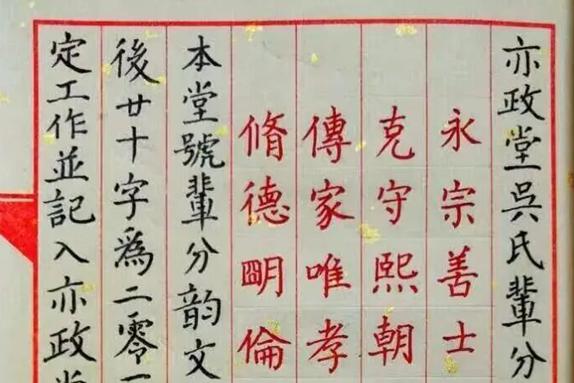 亦政堂吳氏輩分
永宗善士
克守熙朝
傳家唯孝
脩德明倫
本堂號輩分韵文
後廿十字爲二零
定工作並記入亦政